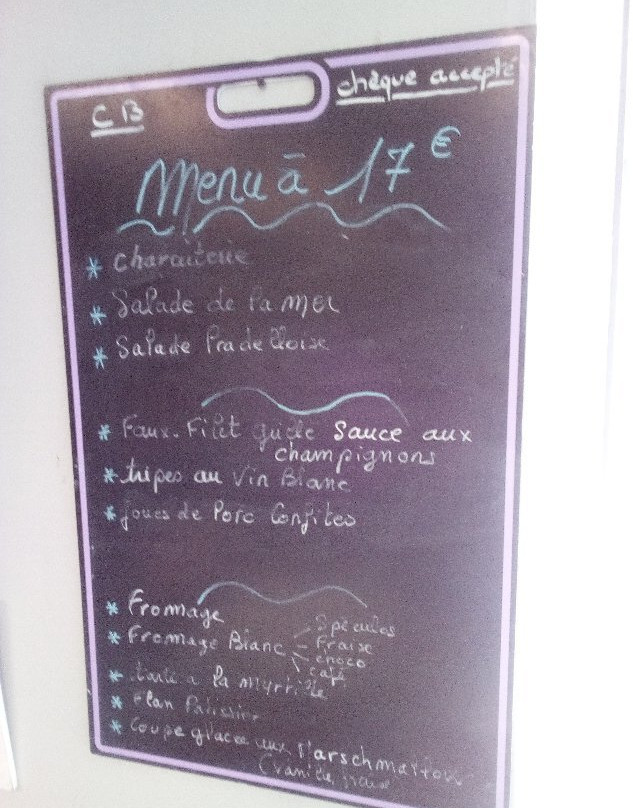 CB
chèque accepté
Menu à 17 €
* Charcuterie
* Salade de la mer
* Salade Pradelloise
* Faux-Filet grillé sauce aux
champignons
* tripes au Vin Blanc
* Joues de Porc Confites
* Fromage
* Fromage Blanc - Spéculos
- Fraise
- choco
\ café
* tarte a la myrtille
* Flan Patissier
* Coupe glacée aux
(vanille, fraise